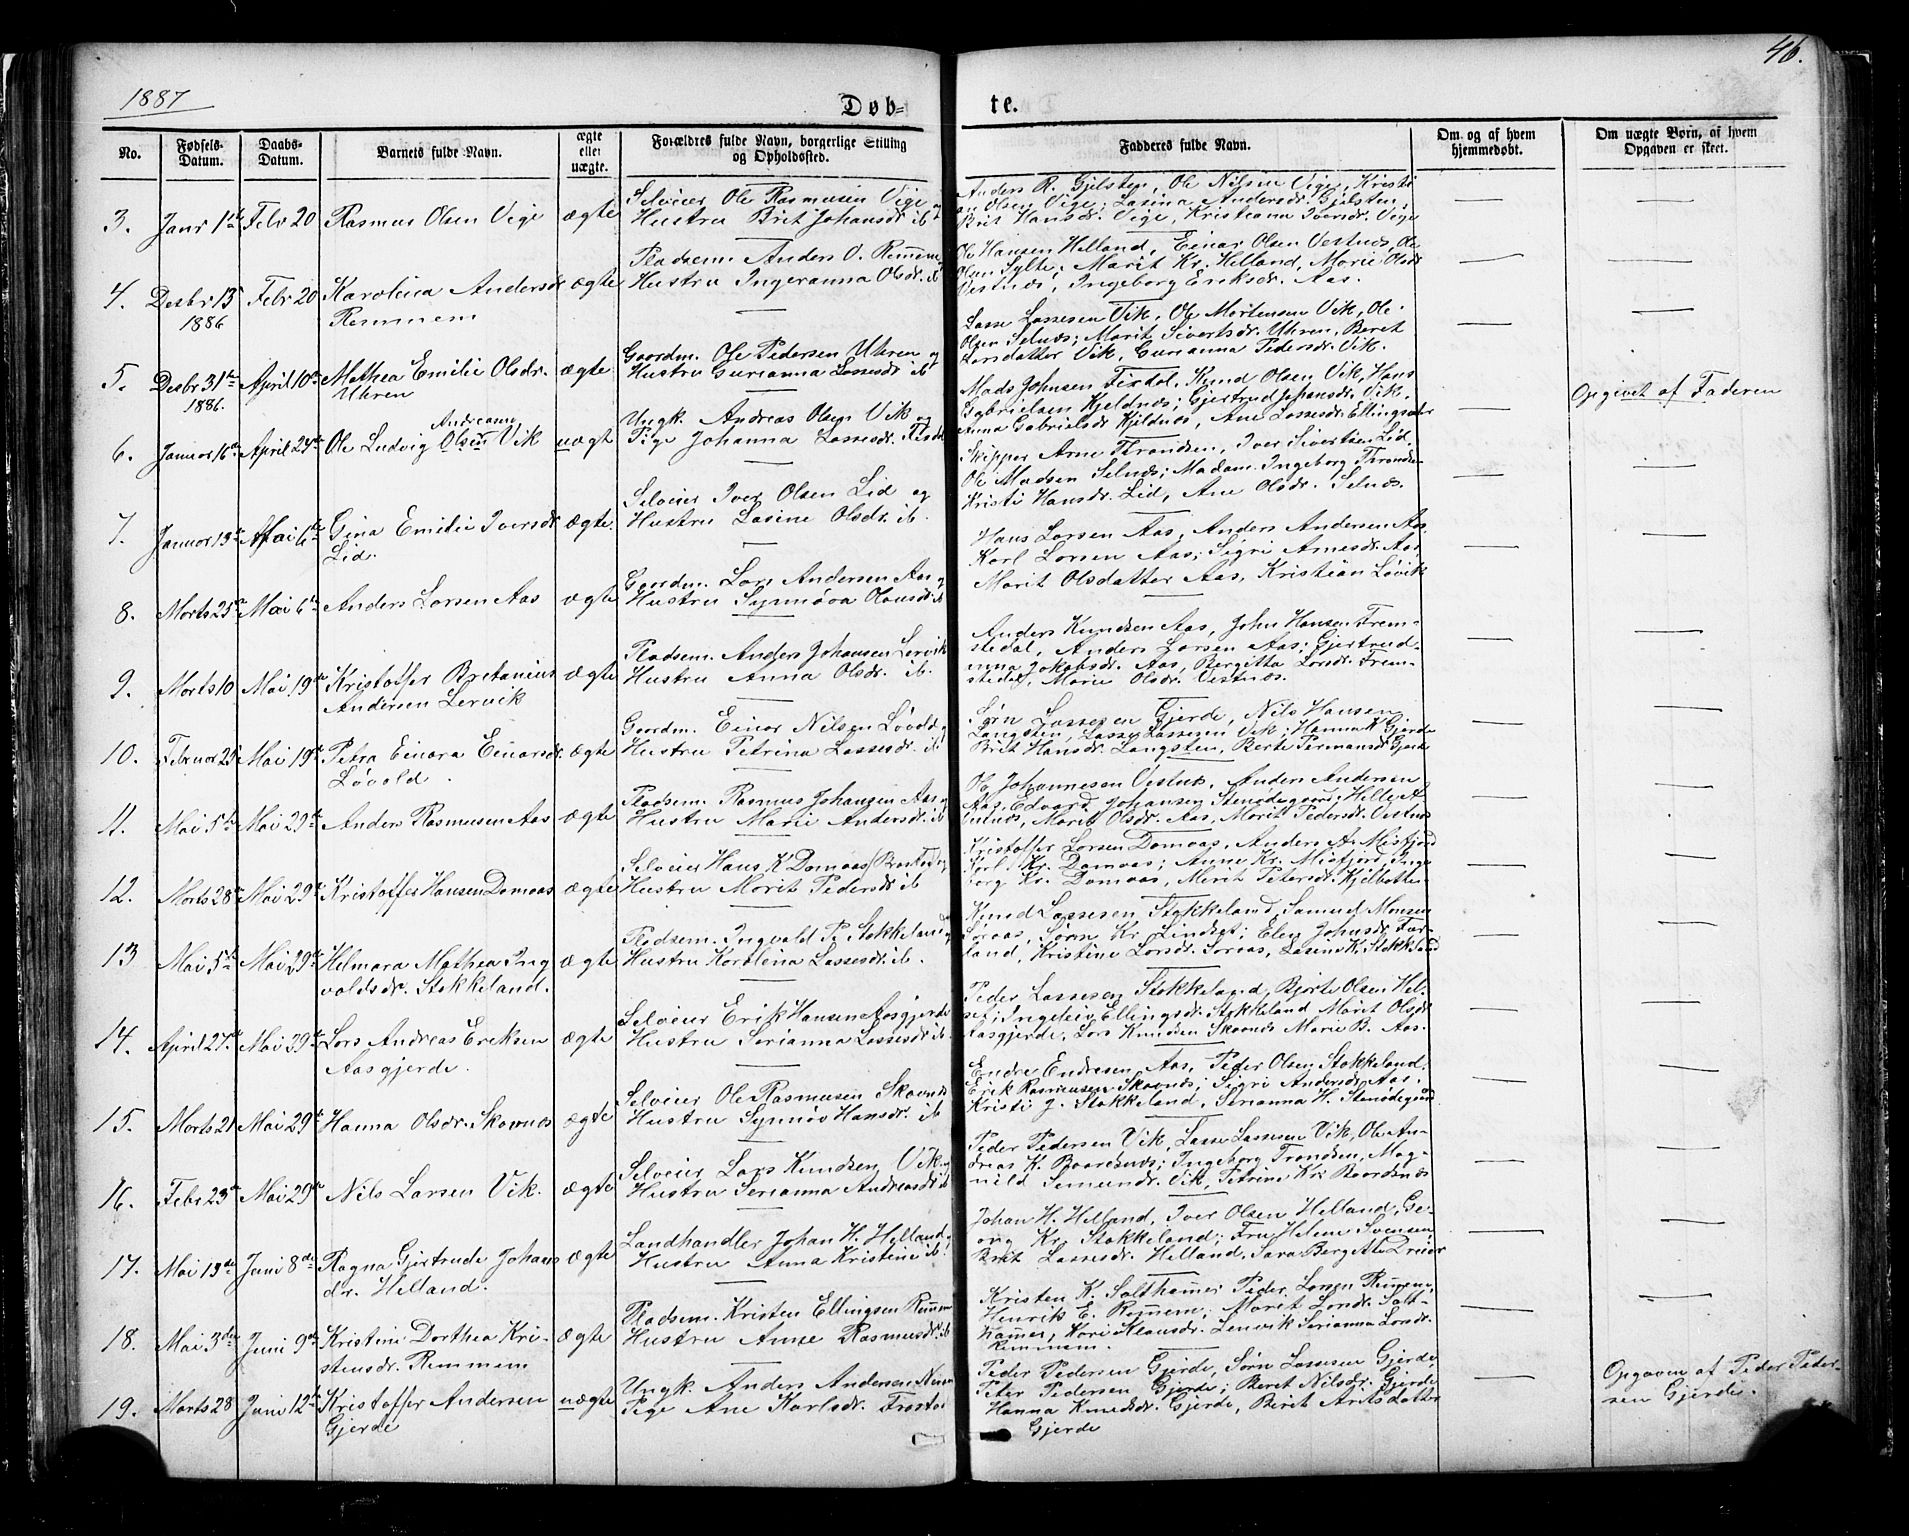 46.
1887
Døb=
te.
No.
Fødsels-Datum.
Daabs-Datum.
Barnets fulde Navn.
ægte eller uægte.
Forældres fulde Navn, borgerlige Stilling og Opholdssted.
Fadderes fulde Navn.
Om og af hvem hjemmedøbt.
Om uægte Børn, af hvem Opgaven er skeet.
3. Janr 1ste Febr 20 Rasmus Olsen Vige ægte
Selveier Ole Rasmusen Vige og
Hustru Brit Johansdr. ib
Anders R. Gjelsten, Ole Nilsen Vige, Kristi
an Olsen Vige; Lasina Andersdr. Gjelsten,
Brit Hansdr. Vige, Kristiana Iversdr. Vige
4. Desbr 15 1886 Febr 20 Karolina Andersdr
Remmem
ægte
Pladsem. Anders O. Remem
Hustru Ingeranna Olsdr. ib
Ole Hansen Helland, Einar Olsen Vestnes, Ole
Olsen Sylte; Marit Kr. Helland, Marie Olsdr
Vestnes, Ingeborg Eriksdr. Aas.
5. Desbr 31te 1886. April 10de Mathea Emilie Olsdr.
Uhren
ægte
Gaardm. Ole Pedersen Uhren og
Hustru Gurianna Lassesdr. ib
Lasse Lassesen Vik, Ole Mortensen Vik, Ole
Olsen Selnes; Marit Sivertsdr. Uhren, Beret
Larsdatter Vik, Gurianna Pedersdr. Vik.
6. Januar 16de April 24de Ole Ludvig Olsen Vik
Andreasen
uægte
Ungk. Andreas Olsen Vik og
Pige Johanna Lassesdr. Fixdal
Mads Johnsen Fixdal, Knud Olsen Vik, Hans
Gabrielsen Kjeldnes; Gjertrud Johansdr. Vik,
Anna Gabrielsdr Kjeldnes, Ane Lassesdr. Ellingsæter
Opgivet af Faderen
7. Januar 13de Mai 6te Gina Emilie Iversdr
Lid.
ægte
Selveier Iver Olsen Lid og
Hustru Lasine Olsdr. ib.
Skipper Arne Throndsen, Iver Sivertsen Lid,
Ole Madsen Selnes; Madam Ingeborg Throndsen
Kristi Hansdr. Lid, Ane Olsdr. Selnes.
8. Marts 25de Mai 6te Anders Larsen Aas ægte
Gaardm. Lars Andersen Aas og
Hustru Synnøva Olausdr. ib
Hans Larsen Aas, Anders Andersen Aas,
Karl Larsen Aas; Sigri Arnesdr. Aas,
Marit Olsdatter Aas, Kristian Løvik
9. Marts 10 Mai 19de Kristoffer Bretanius
Andersen Lervik
ægte
Pladsem. Anders Johansen Lervik
Hustru Anna Olsdr. ib.
Anders Knudsen Aas, John Hansen Frem-
stedal, Anders Larsen Aas; Gjertrud-
anna Jakobsdr. Aas, Bergitta Larsdr. Frem-
stedal, Marie Olsdr. Vestnes.
10. Februar 25 Mai 19de Petra Einara Einarsdr.
Løvold.
ægte
Gaardm. Einar Nilsen Løvold og
Hustru Petrina Lassesdr. ib
Sørn Lassesen Gjerde, Nils Hansen
Langsten, Lasse Lassesen Vik; Hanna K Gjerde
Brit Hansdr. Langsten, Berte Permansdr Gjerde
11. Mai 5te Mai 29de Anders Rasmusen Aas ægte
Pladsem. Rasmus Johansen Aas og
Hustru Marie Andersdr. ib
Ole Johannesen Vestnes, Anders Andersen
Aas, Edvard Johansen Stenødegaard; Helle A
Vestnes, Marit Olsdr. Aas, Marit Pedersdr. Vestnes
12. Marts 28de Mai 29de Kristoffer Hansen Domaas ægte
Selveier Hans K Domaas
Hustru Marit Pedersdr ib
Kristoffer Larsen Domaas, Anders A. Misfjord
Karl Kr. Domaas; Anne Kr. Misfjord, Inge
borg Kr. Domaas, Merit Petersdr. Kjelbotten
13 Mai 5te Mai 29de Helmara Mathea Ing
valdsdr. Stokkeland.
ægte
Pladsem. Ingvald P. Stokkeland og
Hustru Karolena Lassesdr. ib.
Knud Lassesen Stokkeland, Samuel Monsen
Soraas, Sørn Kr. Lindset; Elen Johnsdr. Far-
land, Kristine Larsdr. Soraas, Lasina K. Stokkeland
14. April 27de Mai 29de Lars Andreas Eriksen
Aasgjerde.
ægte
Selveier Erik Hansen Aasgjerde
Hustru Serianna Lassesdr ib
Peder Lassesen Stokkeland, Bjørte Olsen Hel-
set; Ingeleiv Ellingsdr. Stokkeland Marit Olsdr
Aasgjerde, Lars Knudsen Skavnes Marie B. Aas.
15. Marts 21 Mai 29de Hanna Olsdr. Skavnes ægte
Selveier Ole Rasmusen Skavnes
Hustru Synnøv Hansdr. ib
Endre Endresen Aas, Peder Olsen Stokkeland,
Erik Rasmusen Skavnes; Sigri Andersdr Aas.
Kristi J. Stokkeland, Serianna H. Stenødegaard
16. Febr 23de Mai 29de Nils Larsen Vik. ægte
Selveier Lars Knudsen Vik og
Hustru Serianna Andreasdr ib
Peder Pedersen Vik, Lasse Lassesen Vik, Ole An-
dreas K. Baardsnes; Ingeborg Trondsen, Mag-
nild Semundr. Vik, Petrine Kr. Baardsnes
17. Mai 19de Juni 8de Ragna Gjertrude Johans
dr. Helland.
ægte
Landhandler Johan H. Helland og
Hustru Anna Kristine ib!
Johan H. Helland, Iver Olsen Helland, Ge-
org Kr. Stokkeland; Fru Helene Svensen,
Brit Lassesdr. Helland, Sara Bergitte
18. Mai 3de Juni 9de Kristine Dorthea Kri-
stensdr. Remmem
ægte
Pladsem. Kristen Ellingsen Remem
Hustru Anne Rasmusdr. ib
Kristen K. Salthamer Peder Larsen Remem,
Henrik E. Remem; Maret Larsdr. Salt-
hamer, Kari Klausdr. Lervik Serianna Larsdr.
Remmem.
19. Marts 28 Juni 12te Kristoffer Andersen
Gjerde
uægte
Ungk. Anders Andersen
Pige Ane Karlsdr.
Peder Pedersen Gjerde, Sørn Lassesen Gjerde,
Peter Pedersen Gjerde; Beret Nilsdr. Gjerde,
Hanna Knudsdr. Gjerde, Beret Arilsdatter
Gjerde
Opgaven af Peder Peder-
sen Gjerde.